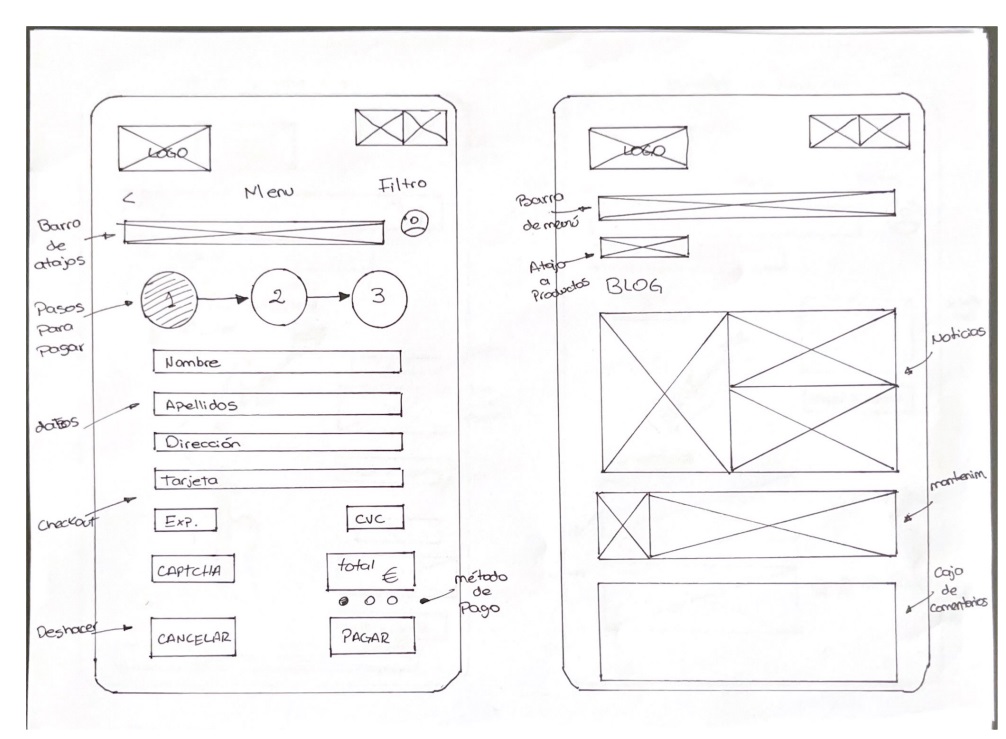 LOGO
<
Menu
Filtro
Barra
de
atajos
1
2
3
Pasos
Para
Pagar
Nombre
Apellidos
datos
Dirección
tarjeta
Checkout
EXP.
CVC
CAPTCHA
total
€
método
de
Pago
Deshacer
CANCELAR
PAGAR
LOGO
Barra
de menú
Atajo
a
Productos
BLOG
Noticias
mantenim.
Caja
de
Comentarios